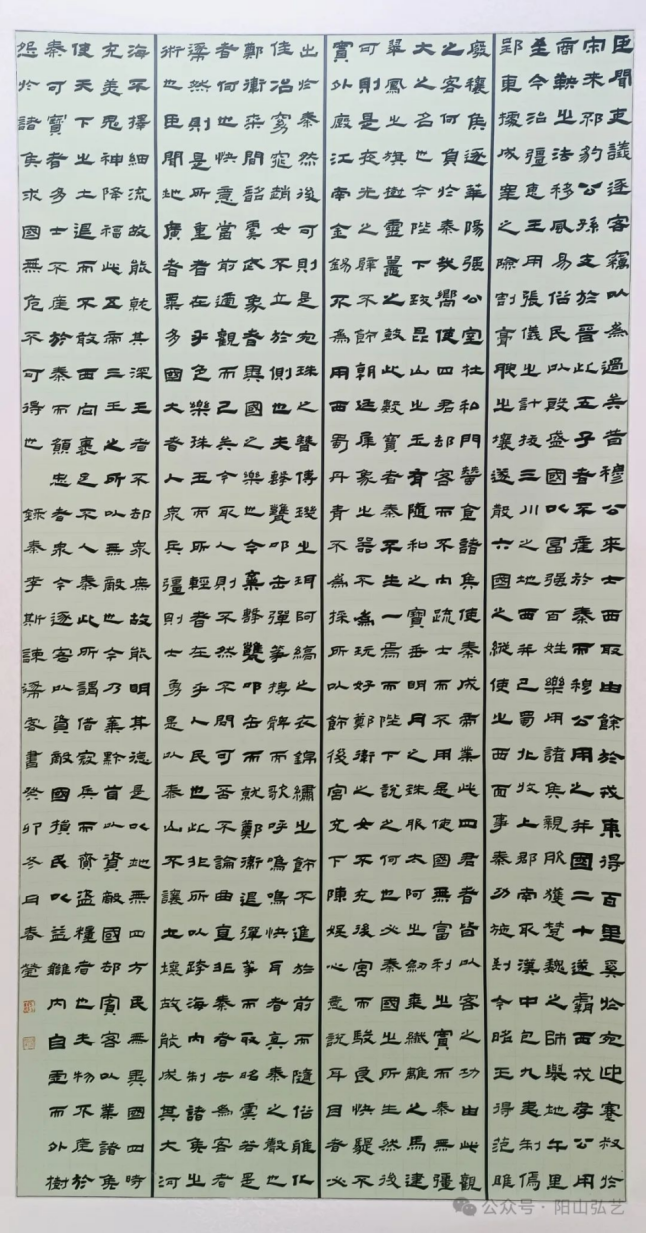 臣聞吏議逐客竊以為過矣昔穆公求士西取由餘於戎東得百里奚於宛迎蹇叔於
宋來邳豹公孫支於晉此五子者不產於秦而穆公用之并國二十遂霸西戎孝公用
商鞅之法移風易俗民以殷盛國以富強百姓樂用諸侯親服獲楚魏之師舉地千里
至今治彊惠王用張儀之計拔三川之地西并巴蜀北收上郡南取漢中包九夷制鄢
郢東據成皋之險割膏腴之壤遂散六國之縱使之西面事秦功施到今昭王得范雎
廢穰侯逐華陽強公室杜私門蠶食諸侯使秦成帝業此四君者皆以客之功由此觀
之客何負於秦哉嚮使四君却客而不內疏士而不用是使國無富利之實而秦無彊
大之名也今陛下致昆山之玉有隨和之寶垂明月之珠服太阿之劍乘纖離之馬建
翠鳳之旗樹靈鼉之鼓此數寶者秦不生一焉而陛下說之何也必秦國之所生然後
可則是夜光之璧不飾朝廷犀象之器不為玩好鄭衛之女不充後宮而駿良駃騠不
實外廄江南金錫不為用西蜀丹青不為採所以飾後宮充下陳娛心意說耳目者必
出於秦然後可則是宛珠之簪傅璣之珥阿縞之衣錦繡之飾不進於前而隨俗雅化
佳冶窈窕趙女不立於側也夫擊甕叩缶彈箏搏髀而歌呼嗚嗚快耳者真秦之聲也
鄭衛桑間韶虞武象者異國之樂也今棄擊甕叩缶而就鄭衛退彈箏而取昭虞若是
者何也快意當前適觀而已矣今取人則不然不問可否不論曲直非秦者去為客者
逐然則是所重者在乎色樂珠玉而所輕者在乎人民也此非所以跨海內制諸侯之
術也臣聞地廣者粟多國大者人眾兵彊則士勇是以泰山不讓土壤故能成其大河
海不擇細流故能就其深王者不却眾庶故能明其德是以地無四方民無異國四時
充美鬼神降福此五帝三王之所以無敵也今乃棄黔首以資敵國却賓客以業諸侯
使天下之士退而不敢西向裹足不入秦此所謂借寇兵而齎盜糧者也夫物不產於
秦可寶者多士不產於秦而願忠者眾今逐客以資敵國損民以益讎內自虛而外樹
怨於諸侯求國無危不可得也 錄秦李斯諫逐客書癸卯冬月春瑩
公众号·阳山弘艺